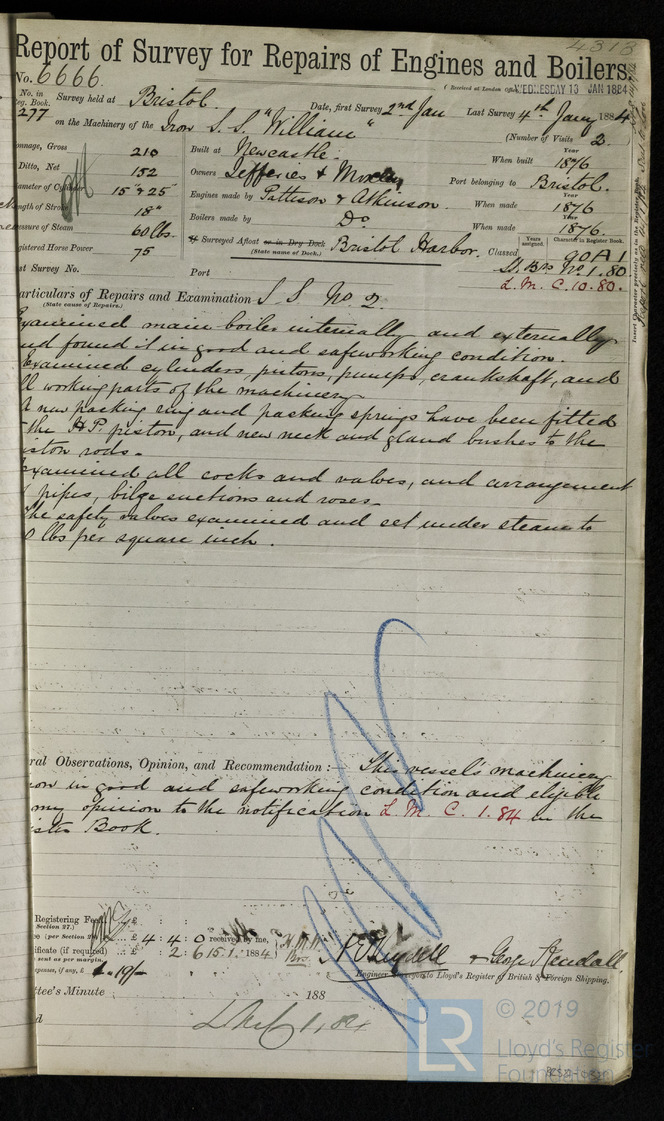 4313
Report of Survey for Repairs of Engines and Boilers.
No. 6666.
( Received at London Office WEDNESDAY 13 JAN 1884
No. in Reg. Book. Survey held at Bristol. Date, first Survey 2nd Jan Last Survey 4th Jany 1884
277 on the Machinery of the Iron S.S. "William" (Number of Visits 2.
onnage, Gross 210 Built at Newcastle. When built Year 1876
Ditto, Net 152 Owners Jefferies & Port belonging to Bristol.
ameter of 15" & 25 Engines made by Pattison & Atkinson. When made 1876
ength of Stroke 18" Boilers made by Do. When made Year 1876.
essure of Steam 60 lbs. if Surveyed Afloat or in Dry Dock Bristol Harbor. Classed Years assigned. Character in Register Book. 90A1
(State name of Dock.)
gistered Horse Power 75
st Survey No. Port No. 1. 80
L. M. C. 10. 80.
articulars of Repairs and Examination S S No 2.
(State cause of Repairs.)
Examined main boiler internally and externally
nd found it in good and safeworking condition.
Examined cylinders, pistons, pumps, crankshaft, and
ll working parts of the machinery
A new packing ring and packing springs have been fitted
the H.P. piston, and new neck and gland bushes to the
iston rods.
Examined all cocks and valves, and arrangement
pipes, bilge suctions and roses.
The safety valves examined and set under steam to
0 lbs per square inch.
ral Observations, Opinion, and Recommendation :— This vessel's machinery
now in good and safeworking condition and eligible
my opinion to the notification L. M. C. 1. 84 in the
ister Book.
Registering Fee £ : :
Section 27.)
(per Section 2 £ 4 : 4 : 0 received by me,
ificate (if required) : 2 : 6 15.1. 1884
sent as per margin.
xpenses, if any, £ 1.19/-
& George Kendall.
Engineer Surveyors to Lloyd's Register of British & Foreign Shipping.
ttee's Minute 188
d
LMC 1,84
LR
© 2019
Lloyd's Register
Foundation